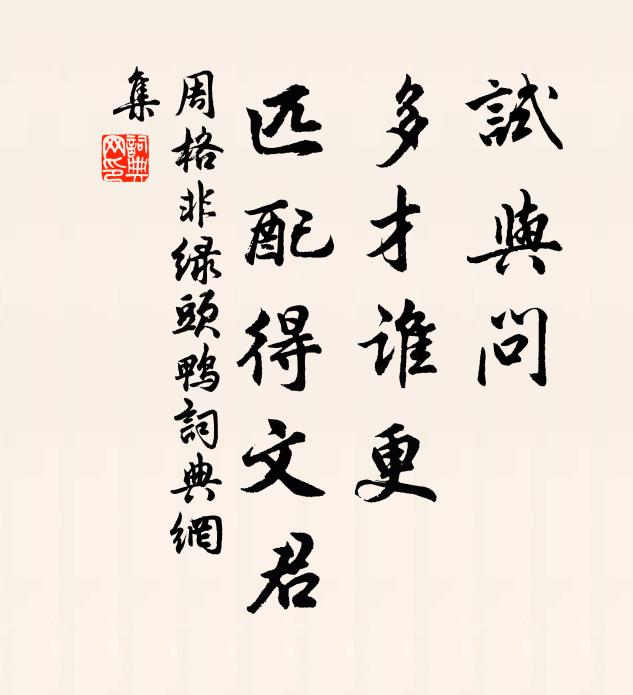 試與問
多才誰更
匹配得文君
周格非緑頭鴨詞典網
集
詞典
网印